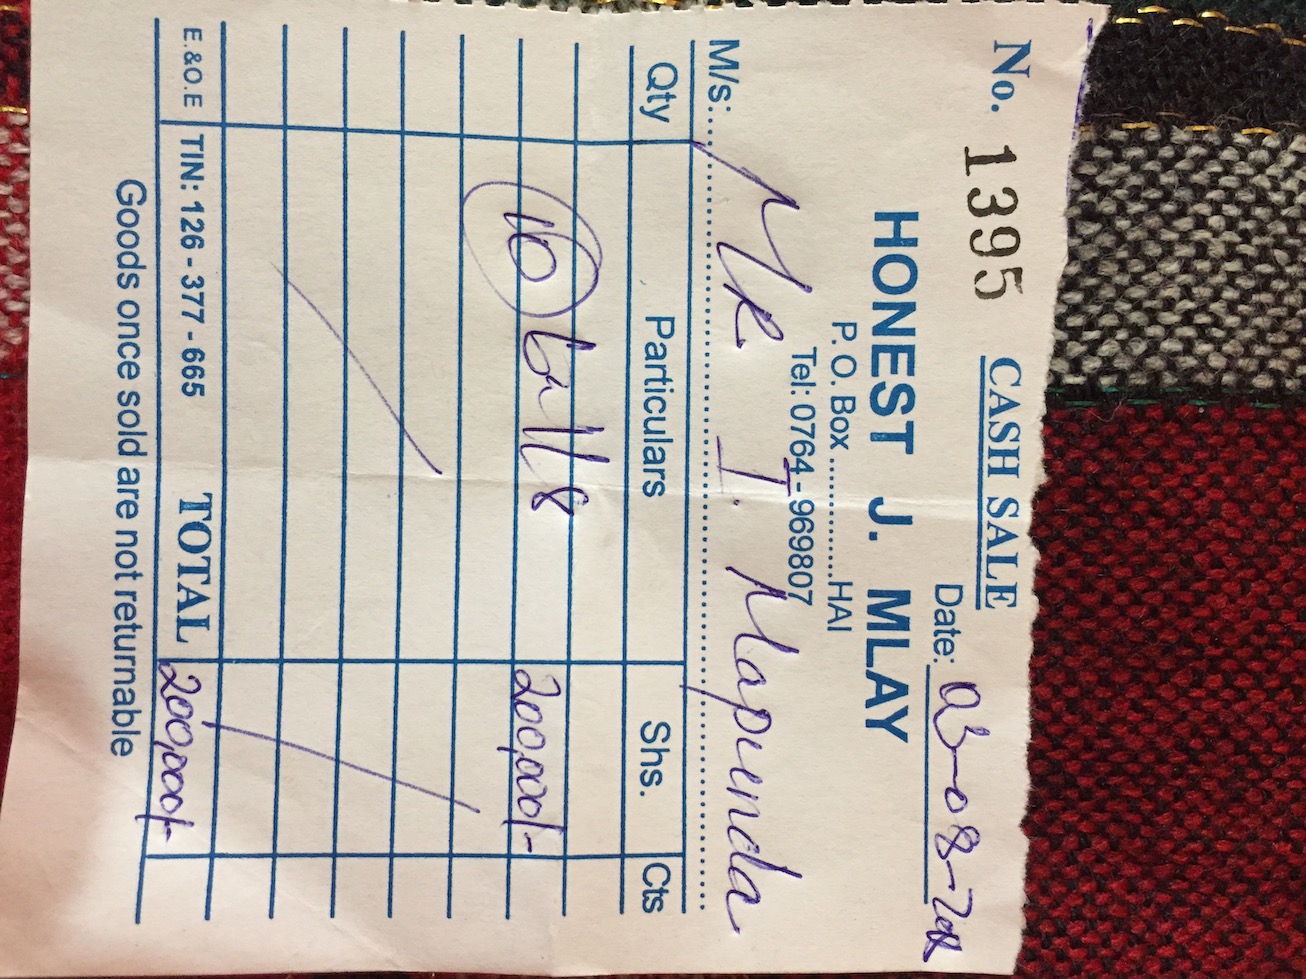 No. 1395 CASH SALE
Date: 03-08-20
HONEST J. MLAY
P. O. Box ...............HAI
Tel: 0764-969807
M/s: MR I. Mapunda
Qty Particulars Shs. Cts
10 balls 200,000/-
E.&O.E TIN: 126 - 377 - 665 TOTAL 200,000/-
Goods once sold are not returnable